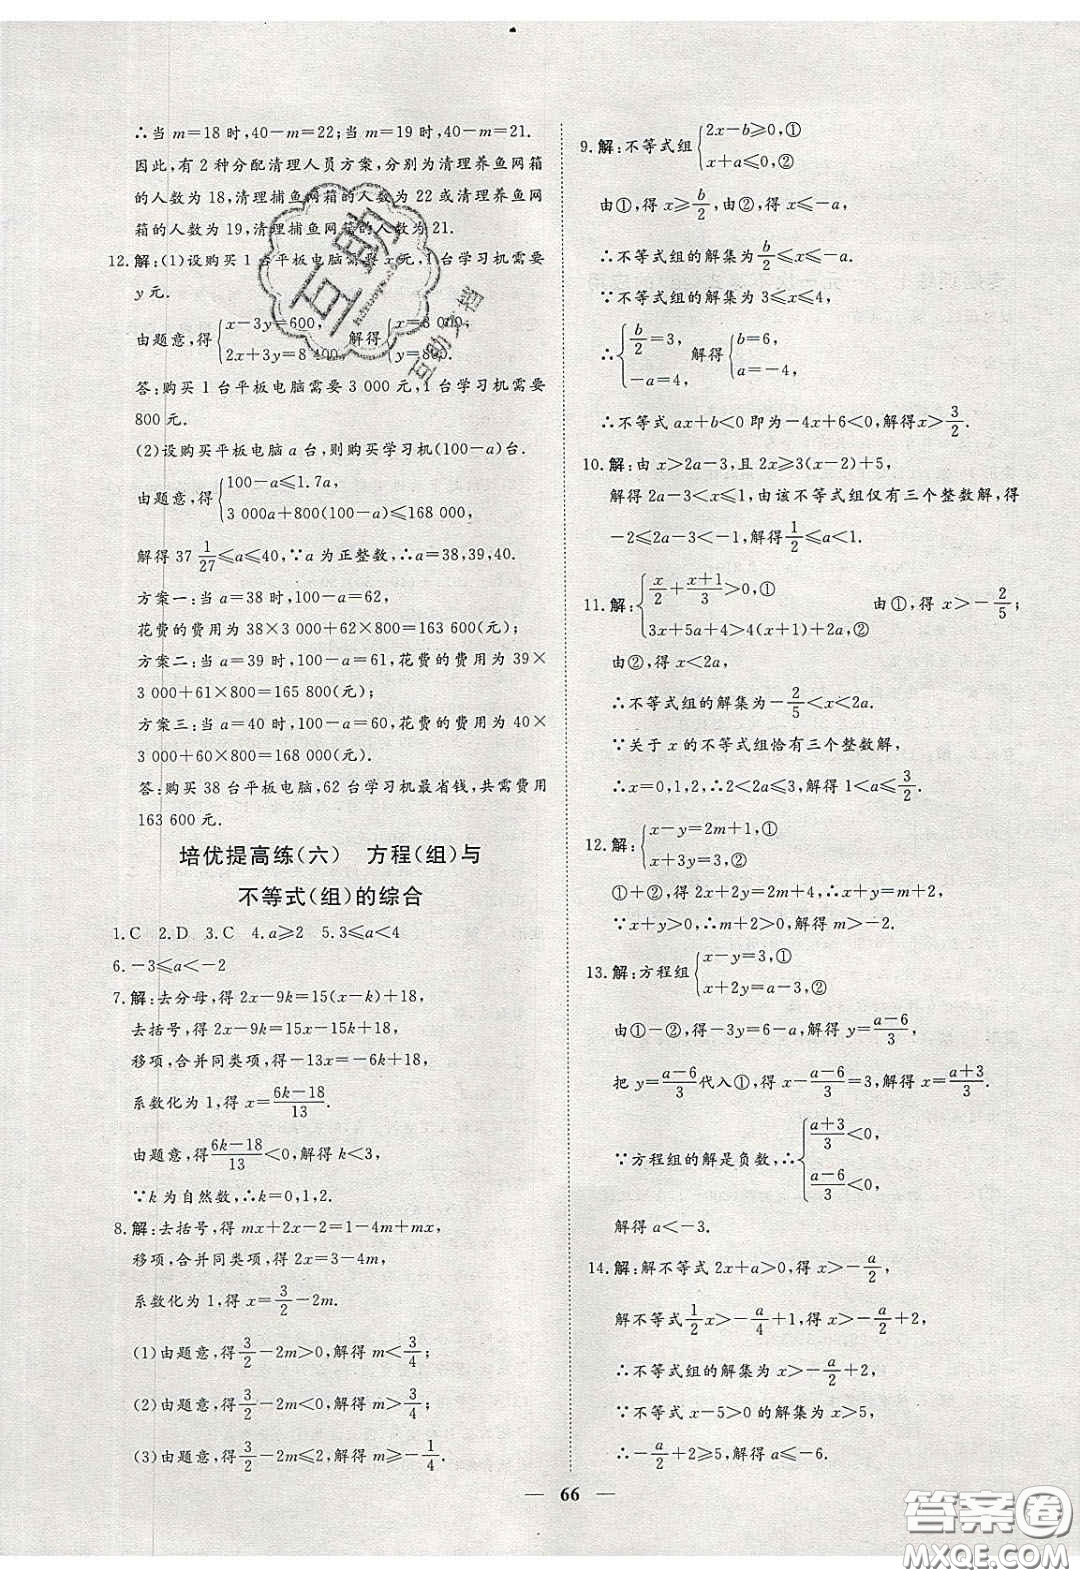 ∴当 m=18 时,40-m=22;当 m=19 时,40-m=21.
因此,有 2 种分配清理人员方案,分别为清理养鱼网箱
的人数为 18,清理捕鱼网箱的人数为 22 或清理养鱼网
箱的人数为 19,清理捕鱼网箱的人数为 21.
12.解:(1)设购买 1 台平板电脑需要 x 元,1 台学习机需要
y 元.
由题意,得{x-3y=600, 2x+3y=8 400, 解得{x=3 000, y=800.
答:购买 1 台平板电脑需要 3 000 元,1 台学习机需要
800 元.
(2)设购买平板电脑 a 台,则购买学习机(100-a)台.
由题意,得{100-a≤1.7a, 3 000a+800(100-a)≤168 000,
解得 37 1/27≤a≤40,∵a 为正整数,∴a=38,39,40.
方案一:当 a=38 时,100-a=62,
花费的费用为 38×3 000+62×800=163 600(元);
方案二:当 a=39 时,100-a=61,花费的费用为 39×
3 000+61×800=165 800(元);
方案三:当 a=40 时,100-a=60,花费的费用为 40×
3 000+60×800=168 000(元).
答:购买 38 台平板电脑,62 台学习机最省钱,共需费用
163 600 元.
培优提高练(六) 方程(组)与
不等式(组)的综合
1.C 2.D 3.C 4.a≥2 5.3≤a<4
6.-3≤a<-2
7.解:去分母,得 2x-9k=15(x-k)+18,
去括号,得 2x-9k=15x-15k+18,
移项,合并同类项,得-13x=-6k+18,
系数化为 1,得 x=(6k-18)/13.
由题意,得(6k-18)/13<0,解得 k<3,
∵k 为自然数,∴k=0,1,2.
8.解:去括号,得 mx+2x-2=1-4m+mx,
移项,合并同类项,得 2x=3-4m,
系数化为 1,得 x=3/2-2m.
(1)由题意,得3/2-2m>0,解得 m<3/4;
(2)由题意,得3/2-2m<0,解得 m>3/4;
(3)由题意,得3/2-2m≤2,解得 m≥-1/4.
9.解:不等式组{2x-b≥0,① x+a≤0,②
由①,得 x≥b/2,由②,得 x≤-a,
∴不等式组的解集为b/2≤x≤-a.
∵不等式组的解集为 3≤x≤4,
∴{b/2=3, -a=4, 解得{b=6, a=-4,
∴不等式 ax+b<0 即为-4x+6<0,解得x>3/2.
10.解:由 x>2a-3,且 2x≥3(x-2)+5,
解得 2a-3<x≤1,由该不等式组仅有三个整数解,得
-2≤2a-3<-1,解得1/2≤a<1.
11.解:{x/2+(x+1)/3>0,① 3x+5a+4>4(x+1)+2a,② 由①,得 x>-2/5;
由②,得 x<2a,
∴不等式组的解集为-2/5<x<2a.
∵关于 x 的不等式组恰有三个整数解,
∴x=0,1,2,∴2<2a≤3,解得 1<a≤3/2.
12.解:{x-y=2m+1,① x+3y=3,②
①+②,得 2x+2y=2m+4,∴x+y=m+2,
∵x+y>0,∴m+2>0,解得 m>-2.
13.解:方程组{x-y=3,① x+2y=a-3,②
由①-②,得-3y=6-a,解得 y=(a-6)/3,
把 y=(a-6)/3代入①,得 x-(a-6)/3=3,解得 x=(a+3)/3.
∵方程组的解是负数,∴{(a+3)/3<0, (a-6)/3<0,
解得 a<-3.
14.解:解不等式 2x+a>0,得 x>-a/2,
解不等式1/2x>-a/4+1,得 x>-a/2+2,
∴不等式组的解集为 x>-a/2+2.
∵不等式 x-5>0 的解集为 x>5,
∴-a/2+2≥5,解得 a≤-6.
66
互助
互助文档
答案圈
MXQE.COM